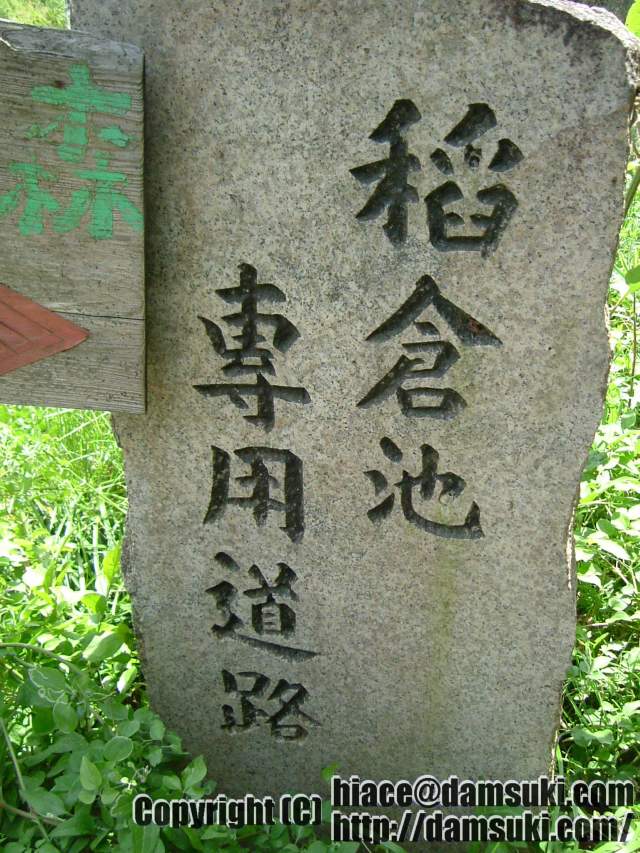 稲倉池
專用道路
森
Copyright (C) hiace@damsuki.com
http://damsuki.com/